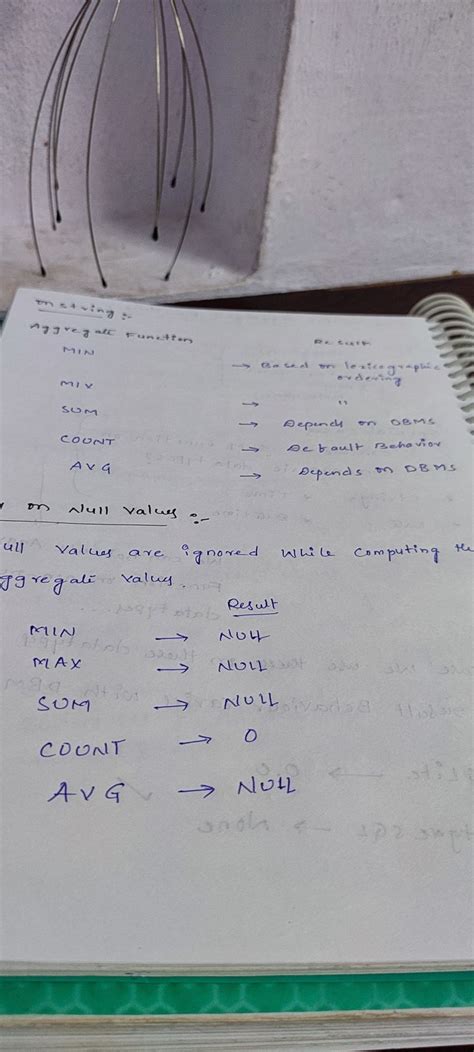 on string :-
Aggregate Function Result
MIN → Based on lexicographic
ordering
MIX → "
SUM → Depends on DBMS
COUNT → Default Behavior
AVG → Depends on DBMS
on Null Values :-
ull Values are ignored while computing the
ggregate values.
Result
MIN → NULL
MAX → NULL
SUM → NULL
COUNT → 0
AVG → NULL